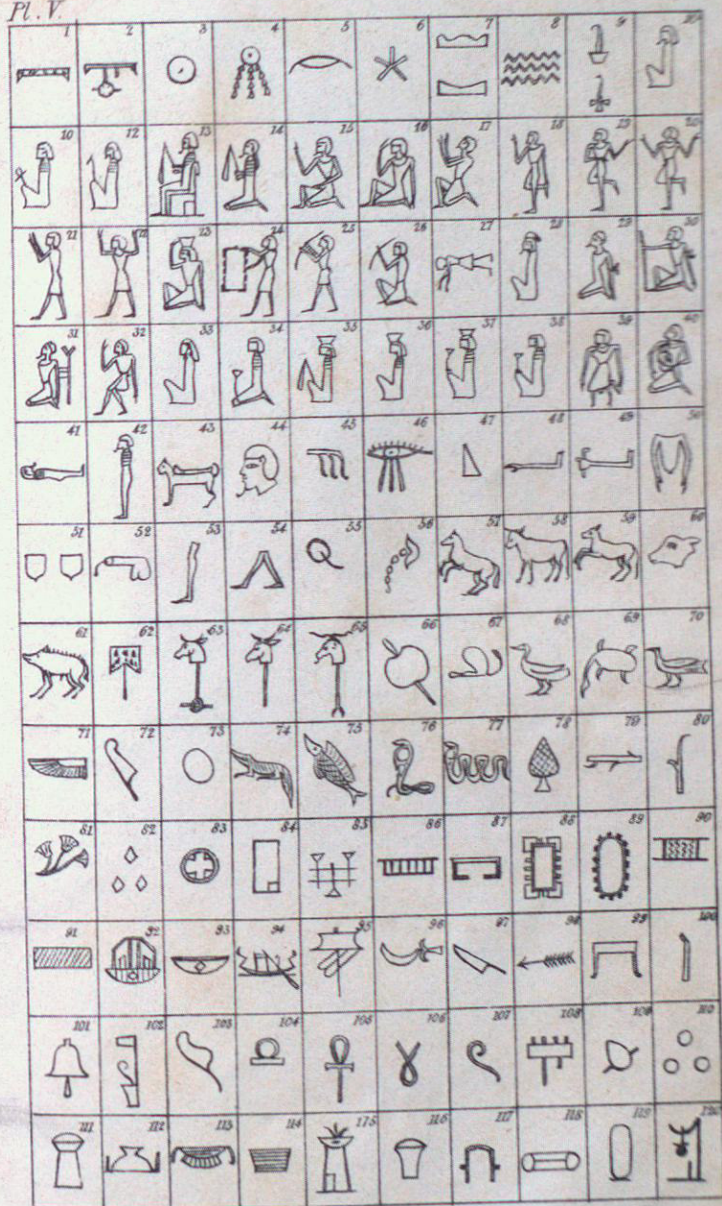 Pl. V.
1 2 3 4 5 6 7 8 9
12 13 14 15 16 17 18 19 20
21 22 23 24 25 26 27 28 29 30
31 32 33 34 35 36 37 38 39 40
41 42 43 44 45 46 47 48 49 50
51 52 53 54 55 56 57 58 59 60
61 62 63 64 65 66 67 68 69 70
71 72 73 74 75 76 77 78 79 80
81 82 83 84 85 86 87 88 89 90
91 92 93 94 95 96 97 98 99 100
101 102 103 104 105 106 107 108 109 110
111 112 113 114 115 116 117 118 119 120